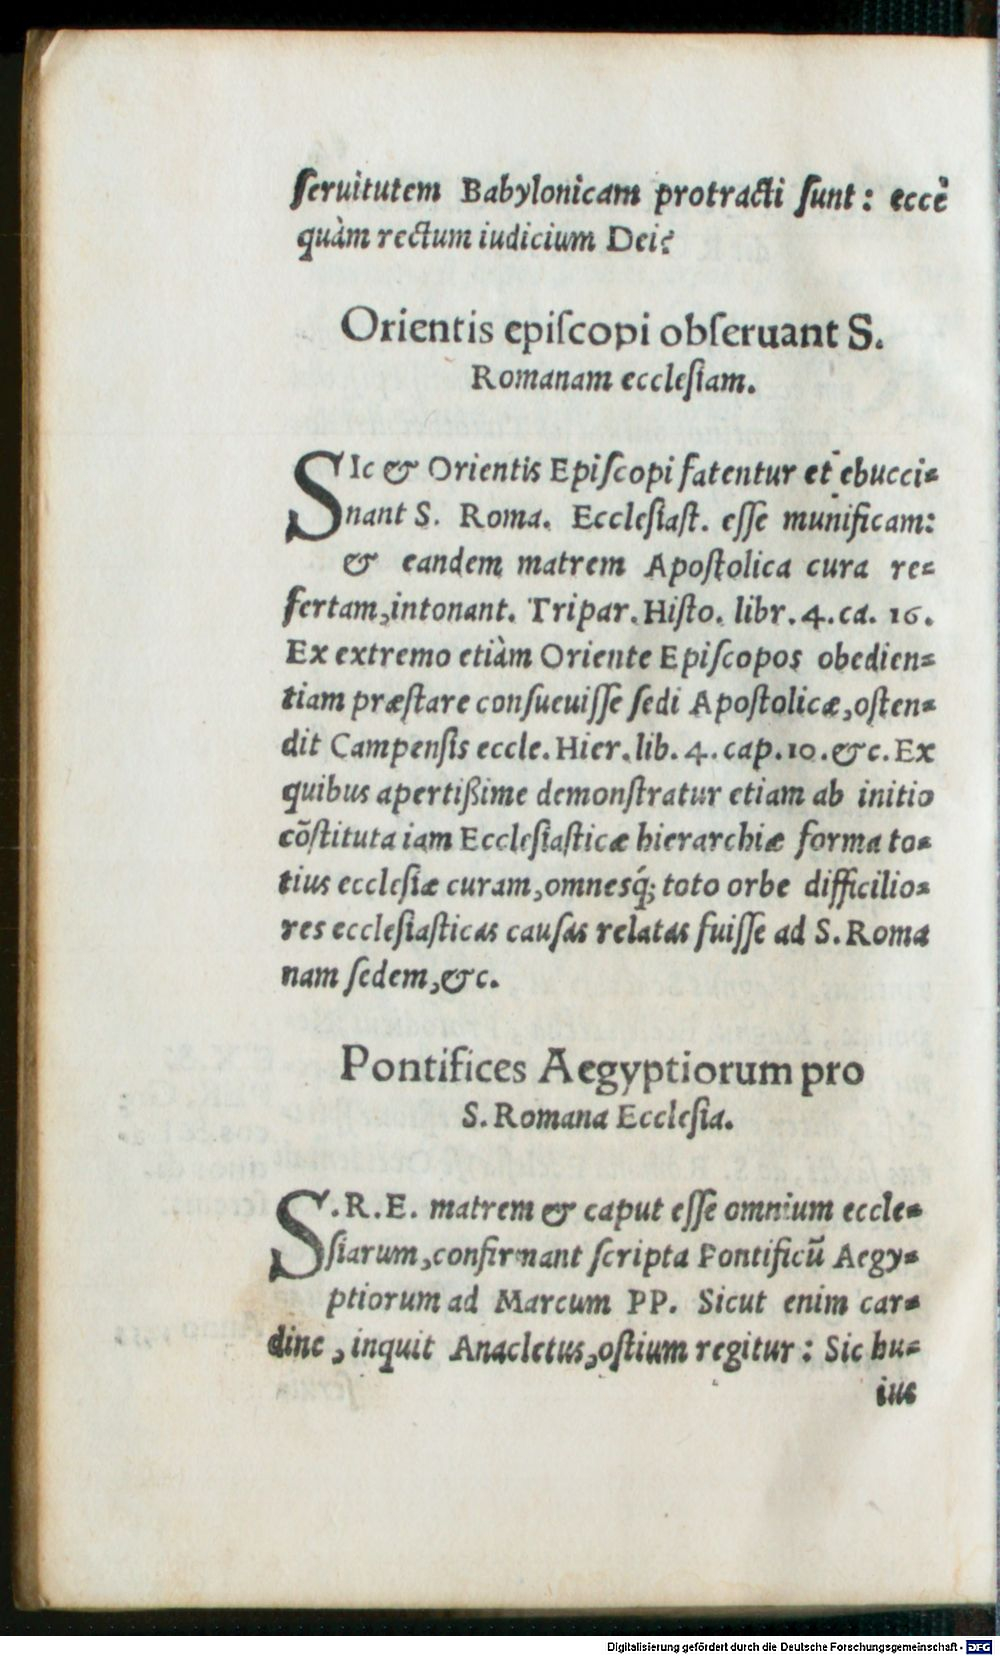 ſeruitutem Babylonicam protracti ſunt: eccè
quàm rectum iudicium Dei?
Orientis epiſcopi obſeruant S.
Romanam eccleſiam.
SIc & Orientis Epiſcopi fatentur et ebucci-
nant S. Roma. Eccleſiaſt. eſſe munificam:
& eandem matrem Apoſtolica cura re-
fertam, intonant. Tripar. Hiſto. libr. 4. ca. 16.
Ex extremo etiàm Oriente Epiſcopos obedien-
tiam præſtare conſueuiſſe ſedi Apoſtolicæ, oſten-
dit Campenſis eccle. Hier. lib. 4. cap. 10. &c. Ex
quibus apertißime demonſtratur etiam ab initio
cõſtituta iam Eccleſiaſticæ hierarchiæ forma to-
tius eccleſiæ curam, omnesq́; toto orbe difficilio-
res eccleſiaſticas cauſas relatas fuiſſe ad S. Roma
nam ſedem, &c.
Pontifices Aegyptiorum pro
S. Romana Eccleſia.
S.R.E. matrem & caput eſſe omnium eccle-
ſiarum, confirmant ſcripta Pontificũ Aegy-
ptiorum ad Marcum PP. Sicut enim car-
dine, inquit Anacletus, oſtium regitur: Sic hu-
ius
Digitalisierung gefördert durch die Deutsche Forschungsgemeinschaft - DFG